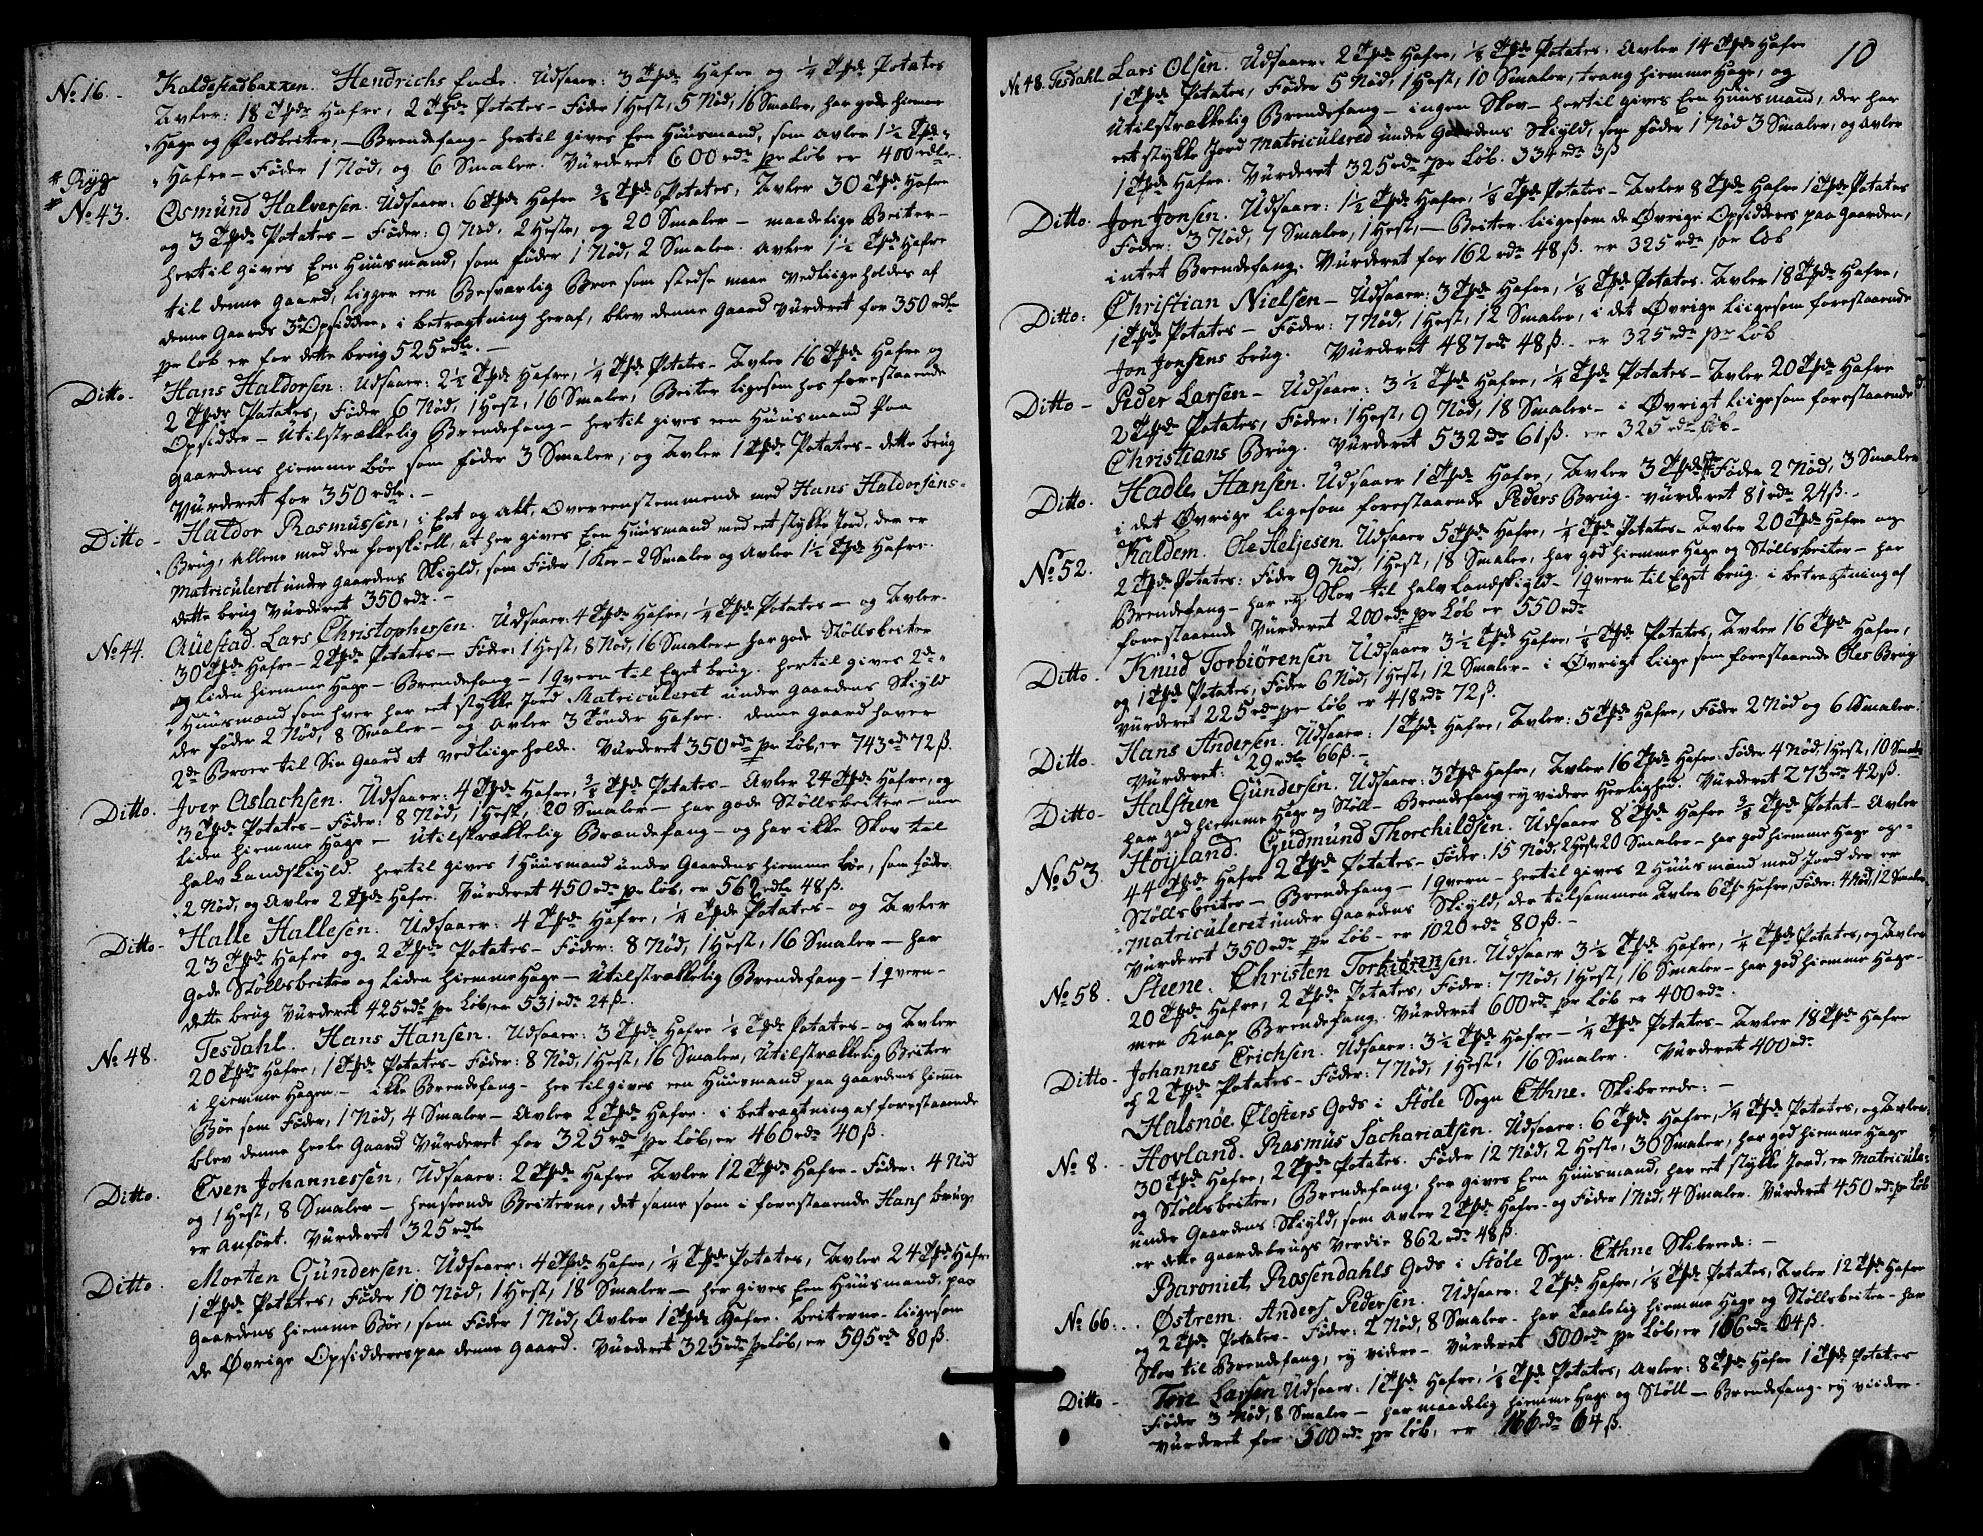 No 16. Kaldestadbakken. Hendrichs Enke. Udsaaer: 3 Tpde Hafre og ¼ Tpde Potates
Avler: 18 Tpde Hafre, 2 Tpde Potates - Føder 1 Hest, 5 Nød, 16 Smaler, har gode hiemme
Hage og beiter, - Brendefang - hertil gives Een Huusmand, som avler 1½ Tpde
Hafre - Føder 1 Nød, og 6 Smaler. Vurderet 600 rdr pr Løb er 400 rdlr.
Ryg
No 43. Osmund Halversen. Udsaaer: 6 Tpde Hafre ⅜ Tpde Potates, Avler 30 Tpde Hafre
og 3 Tpde Potates - Føder: 9 Nød, 2 Heste, og 20 Smaler - maadelige Beiter -
hertil gives Een Huusmand, som føder 1 Nød, 2 Smaler. Avler 1½ Tpde Hafre
til denne Gaard, ligger een Besværlig Broe som stedse maa vedliigeholdes af
denne Gaards 3de Opsiddere, i betragtning heraf, blev denne Gaard vurderet for 350 rdlr
pr Løb er for dette brug 525 rdlr. -
Ditto - Hans Haldorsen: Udsaaer: 2½ Tpde Hafre, ¼ Tpde Potates - Avler 16 Tpde Hafre og
2 Tpde Potates, Føder 6 Nød, 1 Hest, 16 Smaler, Beiter ligesom hos forestaaende
Opsidder - Utilstrækkelig Brendefang - hertil gives een Huusmand paa
Gaardens hiemme Bøe som føder 3 Smaler, og Avler 1 Tpde Potates - dette brug
Vurderet for 350 rdlr. -
Ditto - Haldor Rasmussen, i Eet og Alt, Overeenstemmende med Hans Haldorsens
Brug, Allene med den forskiell, at her gives Een Huusmand med eet stykke Jord, der er
Matriculeret under Gaardens Skiyld, som føder 1 Koe - 2 Smaler og Avler 1½ Tpde Hafre.
dette brug Vurderet 350 rdr. -
No 44. Auestad. Lars Christophersen. Udsaaer: 4 Tpde Hafre, ¼ Tpde Potates - og Avler.
30 Tpde Hafre - 2 Tpde Potates - Føder: 1 Hest, 8 Nød, 16 Smaler - har gode Støllsbeiter
og liden hiemme Hage - Brendefang - 1 Qvern til Eget brug. hertil gives 2de
Huusmænd som hver har eet stykke Jord Matriculeret under Gaardens Skiyld
der føder 2 Nød, 8 Smaler - og Avler 3 Tønder Hafre. denne Gaard haver
2de Broer til Sin Gaard at vedliigeholde. Vurderet 350 rdr pr Løb, er 743 rdr 72 ß.
Ditto. Iver Aslachsen. Udsaaer: 4 Tpde Hafre, ⅜ Tpde Potates - Avler 24 Tpde Hafre, og
3 Tpde Potates - Føder: 8 Nød, 1 Hest, 20 Smaler - har gode Støllsbeiter - men
liden hiemme Hage - utilstrækkelig Brændefang - og har ikke Skov til
halv Landskiyld. hertil gives 1 Huusmand under Gaardens hiemme Bøe, som føder
2 Nød, og Avler 2 Tpde Hafre. Vurderet 450 rdr pr Løb, er 562 rdlr 48 ß.
Ditto - Halle Hallesen. Udsaaer: 4 Tpde Hafre, ¼ Tpde Potates - og Avler
23 Tpde Hafre og 2 Tpde Potates - Føder: 8 Nød, 1 Hest, 16 Smaler - har
Gode Støllsbeiter og liden hiemme Hage - Utilstrækkelig Brendefang - 1 qvern -
dette brug Vurderet 425 rdr pr Løb, er 531 rdr 24 ß.
No 48. Tesdahl. Hans Hansen. Udsaaer: 3 Tpde Hafre ⅛ Tpde Potates - og Avler
20 Tpde Hafre, 1 Tpde Potates - Føder: 8 Nød, 1 Hest, 16 Smaler, Utilstrækkelig Beiter
i hiemme Hagen - ikke Brendefang - her til gives een Huusmand paa Gaardens hieme
Bøe som Føder, 1 Nød, 4 Smaler - Avler 2 Tpde Hafre. i betragtning af forestaaende
blev denne heele Gaard Vurderet for 325 rdr pr Løb, er 460 rdr 40 ß.
Ditto. Even Johannessen, Udsaaer: 2 Tpde Hafre Avler 12 Tpde Hafre - Føder: 4 Nød
og 1 Hest, 8 Smaler - henseende Beiterne, det samme som i forestaaende Hans brug
er Anført. Vurderet 325 rdlr
Ditto. Morten Gundersen. Udsaaer: 4 Tpde Hafre, ¼ Tpde Potates, Avler 24 Tpde Hafre
1 Tpde Potates, Føder 10 Nød, 1 Hest, 18 Smaler - her gives Een Huusmand, paa
Gaardens hiemme Bøe, som Føder 1 Nød, Avler 1 Tpde Hafre. beiterne - liigesom
de Øvrige Opsidderes paa denne Gaard. Vurderet 325 rdr pr Løb, er 595 rdr 80 ß.
10
No 48. Tesdahl Lars Olsen. Udsaaer: 2 Tpde Hafre, ⅛ Tpde Potates. Avler 14 Tpde Hafre
1 Tpde Potates, Føder 5 Nød, 1 Hest, 10 Smaler, trang hiemme Hage, og
Utilstrækkelig Brendefang - ingen Skov - hertil gives Een Huusmand, der har
eet stykke Jord Matriculered under Gaardens Skiyld, som føder 1 Nød 3 Smaler, og Avler
1 Tpde Hafre. Vurderet 325 rdr pr Løb. 334 rdr 3 ß
Ditto. Jon Jonsen. Udsaaer: 1½ Tpde Hafre, ⅛ Tpde Potates - Avler 8 Tpde Hafre 1 Tpde Potates
Føder: 3 Nød, 7 Smaler, 1 Hest, - Beiter liigesom de Øvrige Opsidderes paa Gaarden,
intet Brendefang. Vurderet for 162 rdr 48 ß. er 325 rdr pr Løb
Ditto: Christian Nielsen - Udsaaer: 3 Tpde Hafre, ⅛ Tpde Potates. Avler 18 Tpde Hafre,
1 Tpde Potates - Føder: 7 Nød, 1 Hest, 12 Smaler, i det Øvrige liigesom forestaaende
Jon Jonsens brug. Vurderet 487 rdr 48 ß. - er 325 rdr pr Løb
Ditto - Peder Larsen - Udsaaer: 3½ Tpde Hafre, ¼ Tpde Potates - Avler 20 Tpde Hafre
2 Tpde Potates, Føder: 1 Hest, 9 Nød, 18 Smaler - i Øvrigt liigesom forestaaende
Christians Brug. Vurderet 532 rdr 61 ß. er 325 rdr Løb -
Ditto. Hadle Hansen. Udsaaer 1 Tpde Hafre, Avler 3 Tpde Føder 2 Nød, 3 Smaler
i det Øvrige ligesom forestaaende Peders Brug. vurderet 81 rdr 24 ß. -
No 52. Kaldem. Ole Heljesen. Udsaaer 5 Tpde Hafre, ¼ Tpde Potates - Avler 20 Tpde Hafre og
2 Tpde Potates: Føder 9 Nød, 1 Hest, 18 Smaler, har god hiemme Hage og Støllsbeiter - har
Brendefang - har ey Skov til halv Landskiyld - 1 qvern til Eget brug. i betragtning af
forestaaende Vurderet 200 rdr pr Løb er 550 rdr
Ditto. Knud Torbiørensen Udsaaer 3½ Tpde Hafre, ⅛ Tpde Potates, Avler 16 Tpde Hafre,
og 1 Tpde Potates, Føder 6 Nød, 1 Hest, 12 Smaler - i Øvrigt liigesom forestaaende Oles Brug
vurderet 225 rdr pr Løb er 418 rdr 72 ß.
Ditto. Hans Andersen. Udsaaer: 1 Tpde Hafre, Avler: 5 Tpde Hafre, Føder 2 Nød og 6 Smaler.
Vurderet: 29 rdlr 66 ß. -
Ditto - Halsteen Gundersen. Udsaaer: 3 Tpde Hafre, Avler 16 Tpde Hafre - Føder 4 Nød, 1 Hest, 10 Smaler
har god hiemme Hage og Støll - Brendefang ey videre Herlighed. Vurderet 273 rdr 42 ß.
No 53. Høyland. Gudmund Thorchildsen. Udsaaer 8 Tpde Hafre ⅜ Tpde Potat - Avler
44 Tpde Hafre 2 Tpde Potates - Føder: 15 Nød, 2 Heste 20 Smaler - har god hiemme Hage og
Støllsbeiter - Brendefang - 1 Qvern - hertil gives 2 Huusmænd med Jord der er
Matriculeret under Gaardens Skiyld, der tilsammen Avler 6 Tp Hafre, Føder: 4 Nød, 12 Smaler
Vurderet 350 rdr pr Løb - er 1020 rdr 80 ß. -
No 58. Steene. Christen Torbiørnsen. Udsaaer 3½ Tpde Hafre, ¼ Tpde Potates, og Avler
20 Tpde Hafre, 2 Tpde Potates, Føder: 7 Nød, 1 Hest, 16 Smaler - har god hiemme Hage -
men Knap Brendefang. Vurderet 600 rdr pr Løb er 400 rdr.
Ditto - Johannes Erichsen. Udsaaer: 3½ Tpde Hafre - ¼ Tpde Potates - Avler 18 Tpde Hafre
og 2 Tpde Potates - Føder: 7 Nød, 1 Hest, 16 Smaler. Vurderet 400 rdr
Halsnøe Closters Gods i Støle Sogn Ethne Skibreede: -
No 8. Hovland. Rasmus Sachariatsen. Udsaaer: 6 Tpde Hafre, ¼ Tpde Potates, og Avler
30 Tpde Hafre, 2 Tpde Potates. Føder 12 Nød, 2 Heste, 30 Smaler, har god hiemme Hage
og Støllsbeiter, Brendefang, her gives Een Huusmand, har eet stykke Jord, er Matricule:
under Gaardens Skiyld, som Avler 2 Tpde Hafre - og Føder 1 Nød, 4 Smaler. Vurderet 450 rdr pr Løb
er dette Gaardebrugs Verdie 862 rdr 48 ß.
Baroniet Rosendahls Gods i Støle Sogn. Ethne Skibreede: -
No 66. Østrem. Anders Pedersen. Udsaaer: 2 Tpde Hafre, ⅛ Tpde Potates, Avler 12 Tpde Hafre
og 2 Tpde Potates - Føder: 2 Nød, 8 Smaler - har taalelig hiemme Hage og Støllsbeiter - har
Skov til Brendefang, ey videre - Vurderet 500 rdr pr Løb, er 166 rdr 64 ß.
Ditto - Tore Larsen Udsaaer: 1 Tpde Hafre, ⅛ Tpde Potates, Avler: 8 Tpde Hafre 1 Tpde Potates
Føder 3 Nød, 8 Smaler - har maadelig hiemme Hage og Støll - Brendefang - ey viidere -
Vurderet for 500 rdr pr Løb, er 166 rdr 64 ß.